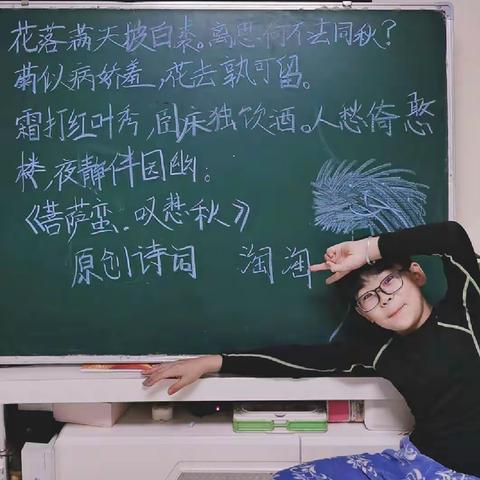 花落满天披白裘。离思何不去同秋?
菊似病娇羞,花去孰可留。
霜打红叶秀,卧床独饮酒。人愁倚憨
楼,夜静伴因幽。
《菩萨蛮·叹愁秋》
原创诗词 淘淘